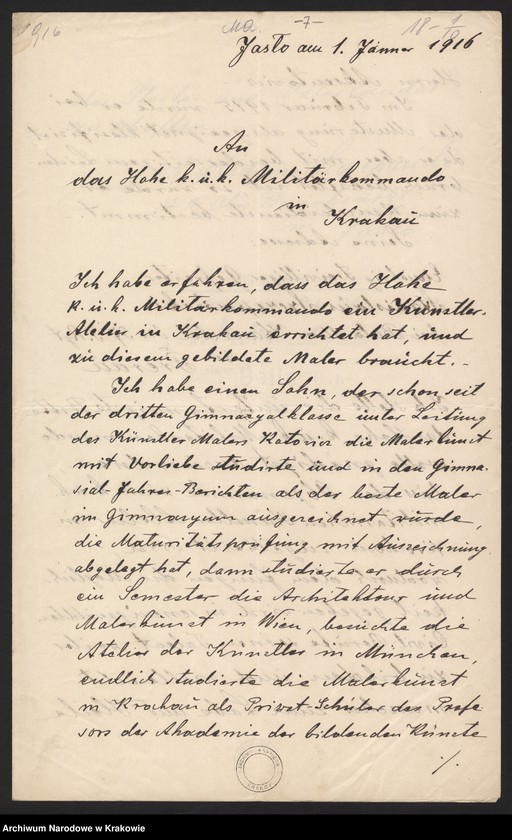 1916
-7-
Jasło am 1. Jänner 1916
An
das Hohe k. u. k. Militärkommando
in
Krakau
Ich habe erfahren, dass das Hohe
k. u. k. Militärkommando ein Künstler-
Atelier in Krakau errichtet hat, und
zu diesem gebildete Maler braucht. -
Ich habe einen Sohn, der schon seit
der dritten Gimnasyalklasse unter Leitung
des Künstler Malers Ratowicz die Malerkunst
mit Vorliebe studirte und in den Gimna-
sial-Jahres-Berichten als der beste Maler
im Gimnasyum ausgezeichnet wurde,
die Maturitätsprüfung mit Auszeichnung
abgelegt hat, dann studierte er durch
ein Semester die Architektur und
Malerkunst in Wien, besuchte die
Atelier der Künstler in München,
endlich studierte die Malerkunst
in Krakau als Privat-Schüler des Profe-
sors der Akademie der bildenden Künste
./.
Archiwum Narodowe w Krakowie